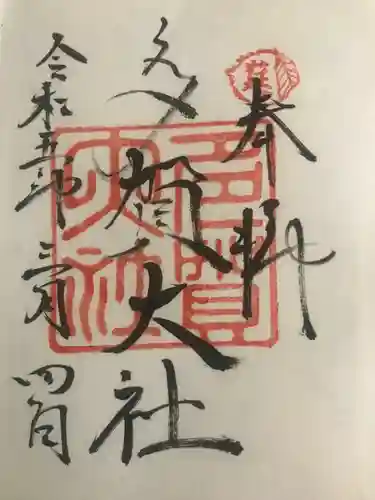 奉拝
多賀大社
令和五年三月四日
多賀大社